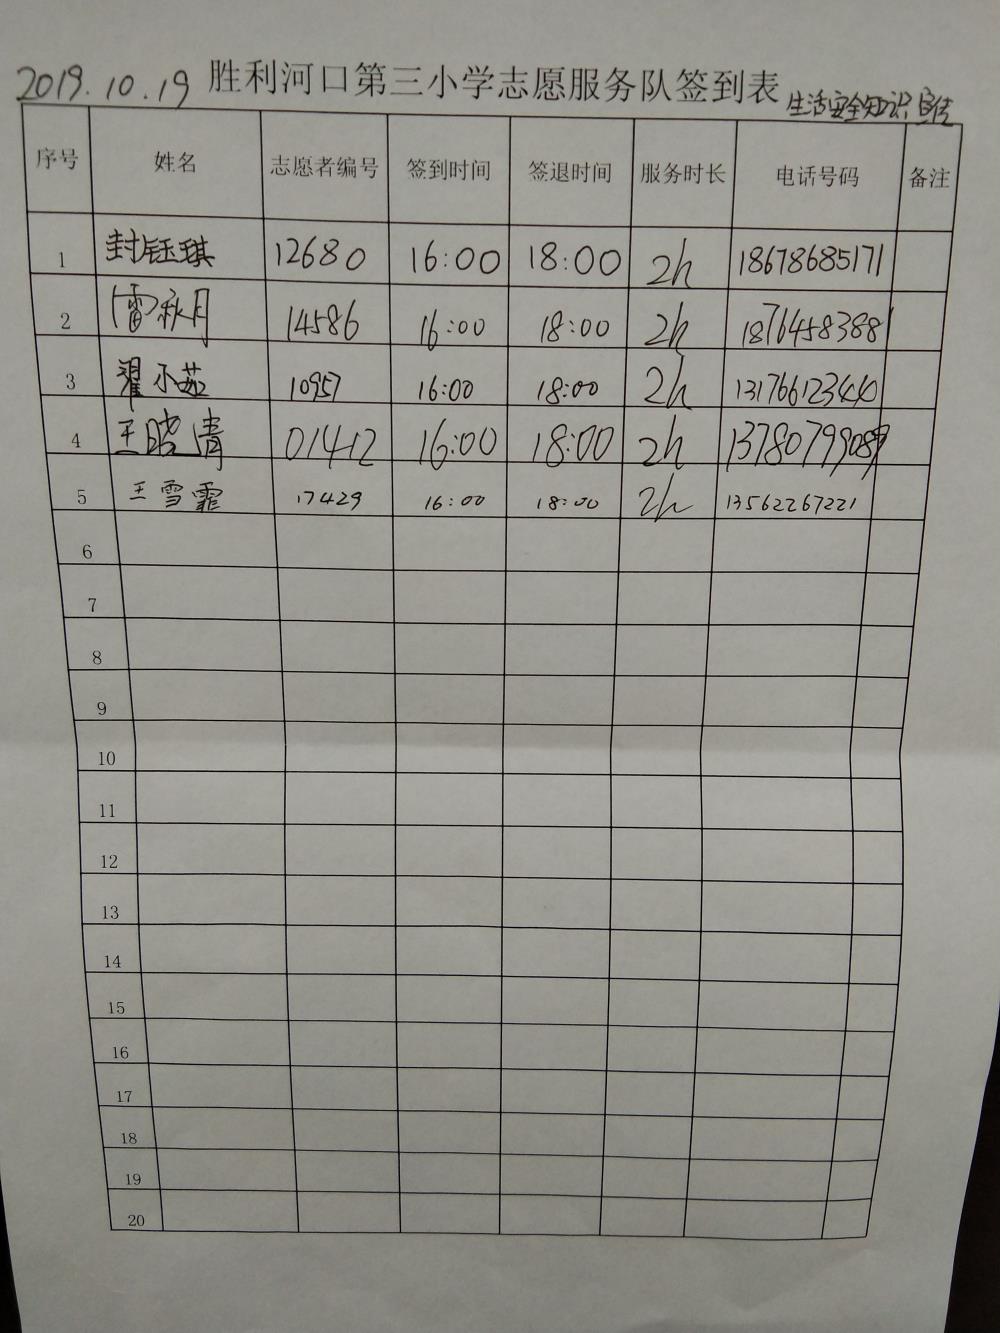 2019.10.19 胜利河口第三小学志愿服务队签到表 生活安全知识宣传
序号 姓名 志愿者编号 签到时间 签退时间 服务时长 电话号码 备注
1 封钰琪 12680 16:00 18:00 2h 18678685171
2 (雷)秋月 14586 16:00 18:00 2h 18764583881
3 翟小茹 10957 16:00 18:00 2h 131766123440
4 王晓清 01412 16:00 18:00 2h 13780799089
5 王雪霏 17429 16:00 18:00 2h 13562267221
6
7
8
9
10
11
12
13
14
15
16
17
18
19
20